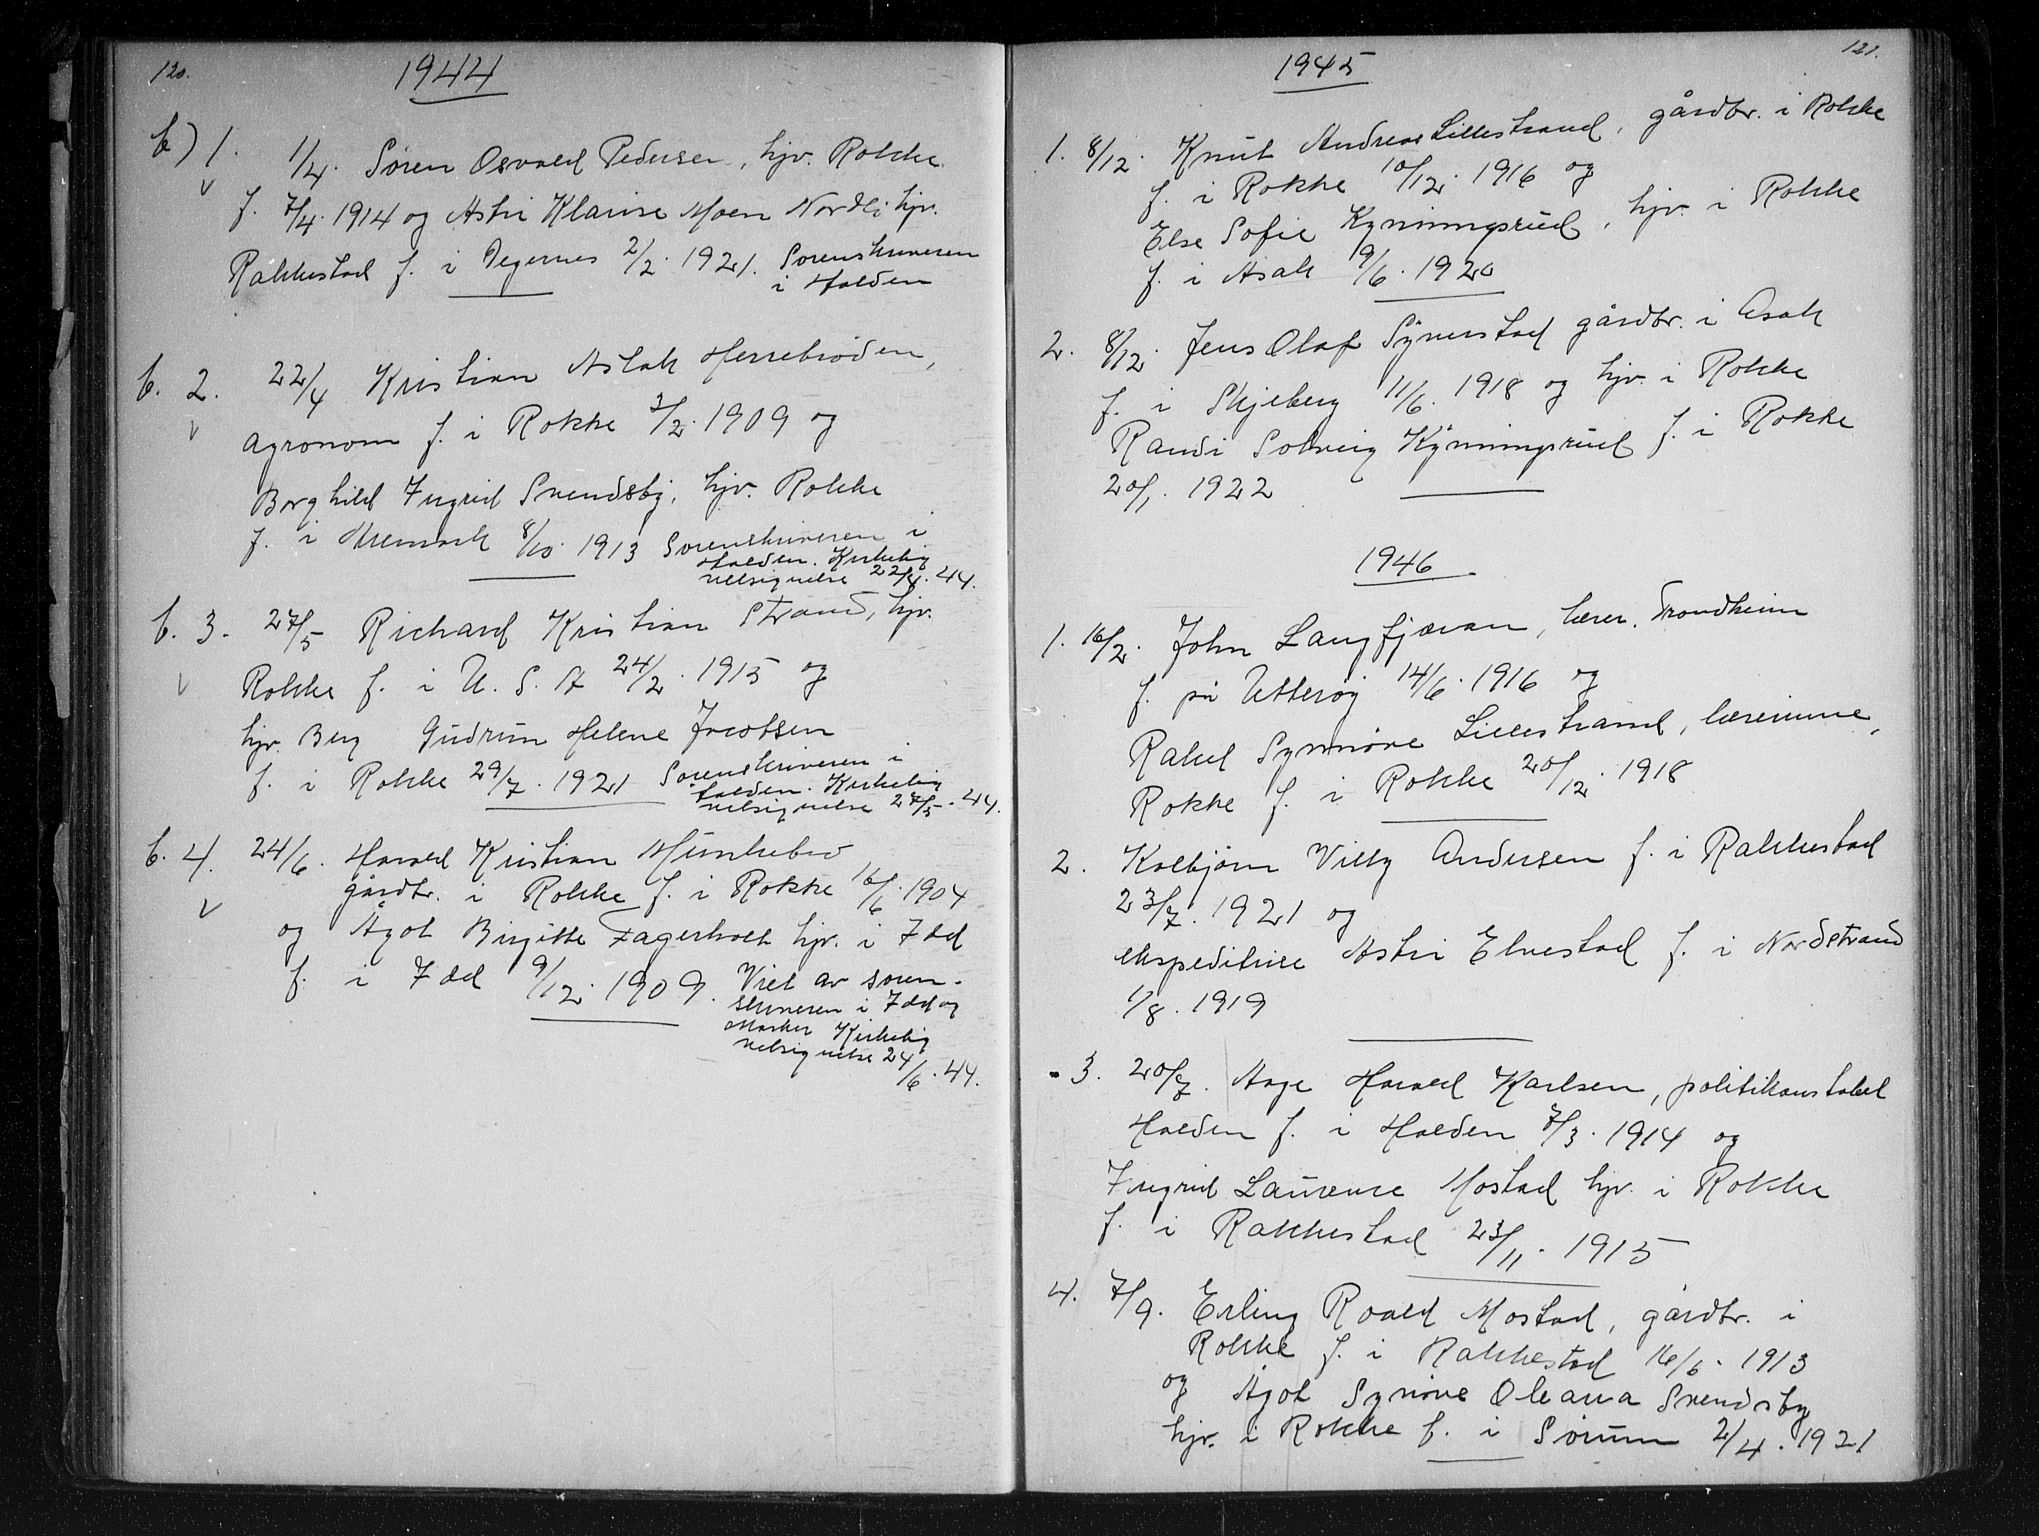 120.
1944
b) 1. 1/4. Søren Osvald Pedersen, hjv. Rokke.
f. 7/4. 1914 og Astri Klarise Moen Nordli hjv.
Rakkestad f. i Degernes 2/2. 1921. Sorenskriveren
i Halden
b. 2. 22/4 Kristian Aslak Herrebrøden,
agronom f. i Rokke 3/2. 1909 og
Borghild Ingrid Svendsby, hjv. Rokke
f. i Aremark 8/10. 1913 Sorenskriveren i
Halden. Kirkelig
velsignelse 22/4. 44.
b. 3. 27/5 Richard Kristian Strand, hjv.
Rokke f. i U. S. A 24/2. 1915 og
hjv. Berg Gudrun Helene Jacobsen
f. i Rokke 29/7. 1921 Sorenskriveren i
Halden. Kirkelig
velsignelse 27/5. 44.
b. 4. 24/6. Harald Kristian Munkebro
gårdbr. i Rokke f. i Rokke 16/6. 1904
og Ågot Birgitte Fagerholt hjv. i Idd
f. i Idd 9/12. 1909. Viet av soren-
skriveren i Idd og
Marker Kirkelig
velsignelse 24
/6. 44.
121.
1945
1. 8/12. Knut Andreas Lillestrand, gårdbr. i Rokke
f. i Rokke 10/12. 1916 og
Else Sofie Kynningsrud, hjv. i Rokke
f. i Asak 9/6. 1920
2. 8/12. Jens Olaf Synerstad gårdbr. i Asak
f. i Skjeberg 11/6. 1918 og hjv. i Rokke
Randi Solveig Kynningsrud f. i Rokke
20/1. 1922
1946
1. 16/2. John Langfjæran, lærer. Trondheim
f. på Ytterøy 14/6. 1916 og
Rakel Synnøve Lillestrand, lærerinne,
Rokke f. i Rokke 20/12. 1918
2. Kolbjørn Villy Andersen f. i Rakkestad
23/7. 1921 og
ekspeditrise Astri Elvestad f. i Nordstrand
1/8. 1919
3. 20/7. Aage Harald Karlsen, politikonstabel
Halden f. i Halden 7/3. 1914 og
Ingrid Laurense Mostad hjv. i Rokke
f. i Rakkestad 23/11. 1915
4. 7/9. Erling Roald Mostad, gårdbr. i
Rokke f. i Rakkestad 16/6. 1913
og Ågot Synøve Oleana Svendsby
hjv. i Rokke f. i Sørum 2/4. 1921